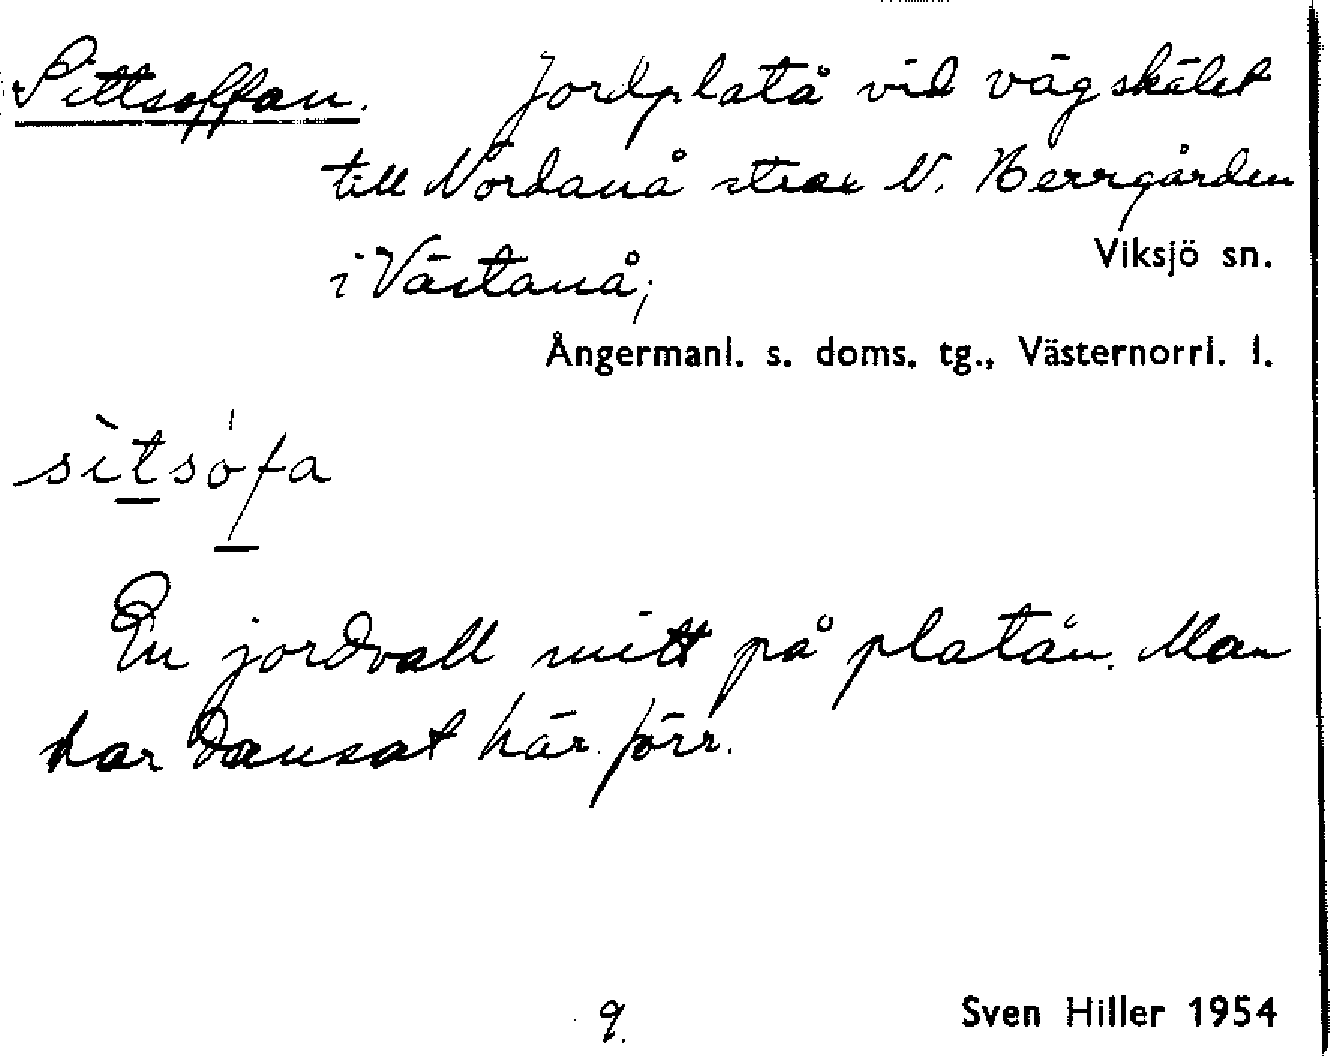 Sittsoffan. Jordplatå vid vägskälet
till Nordanå strax N. Herrgården
i Västanå;
Viksjö sn.
Ångermanl. s. doms. tg., Västernorrl. l.
sìtsófa
En jordvall mitt på platån. Man
har dansat här förr.
9.
Sven Hiller 1954